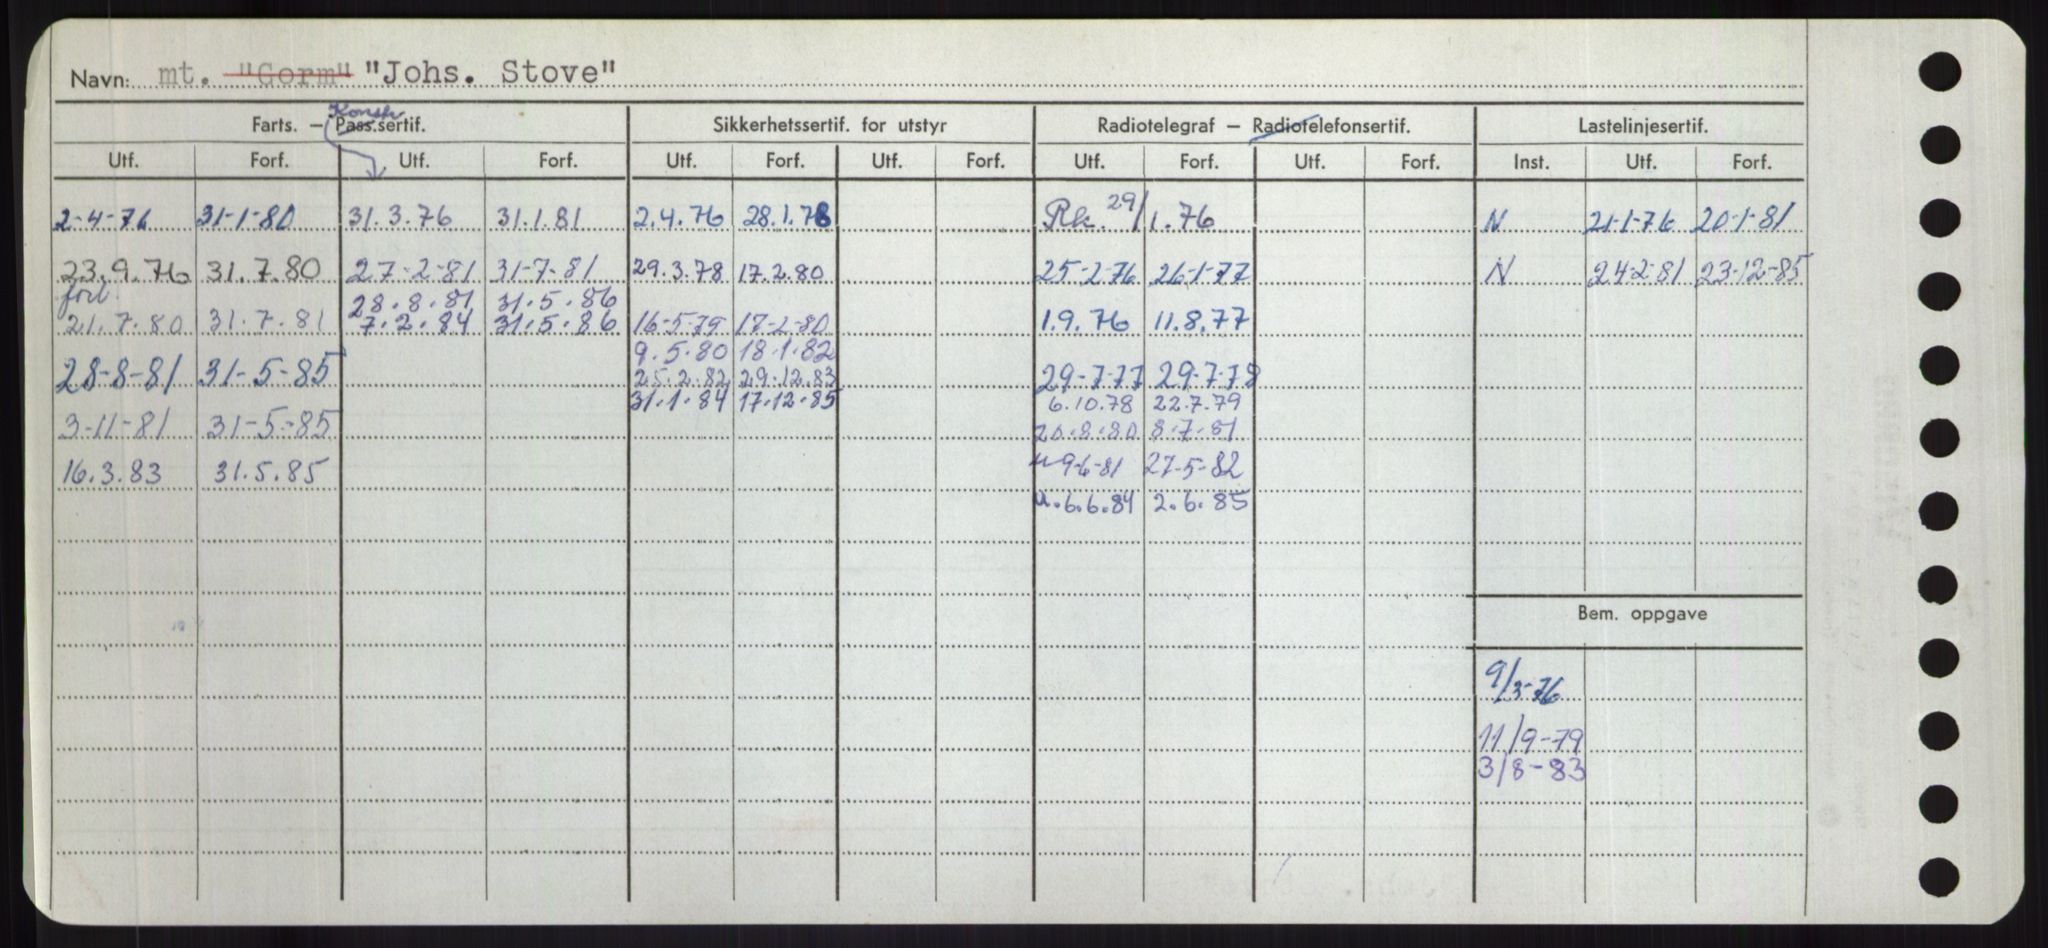 Navn: mt. "Gorm" "Johs. Stove"
Konstr
Farts. — Pass.sertif. Sikkerhetssertif. for utstyr Radiotelegraf — Radiotelefonsertif. Lastelinjesertif.
Utf. Forf. Utf. Forf. Utf. Forf. Utf. Forf. Utf. Forf. Utf. Forf. Inst. Utf. Forf.
2-4-76 31-1-80 31.3.76 31.1.81 2.4.76 28.1.78 Rk. 29/1.76 N 21-1-76 20-1-81
23.9.76 31.7.80 27-2-81 31-7-81 29.3.78 17.2.80 25-2-76 26-1-77 N 24-2-81 23-12-85
forl. 28.8.81 31.5.86
21.7.80 31.7.81 7.2.84 31.5.86 16-5-79 17-2-80 1.9.76 11.8.77
9.5.80 18.1.82
28-8-81 31-5-85 25.2.82 29.12.83 29-7-77 29-7-78
31.1.84 17.12.85 6.10.78 22.7.79
3-11-81 31-5-85 20.8.80 8.7.81
16.3.83 31.5.85 9-6-81 27-5-82
u.6.6.84 2.6.85
Bem. oppgave
9/3-76
11/9-79
3/8-83